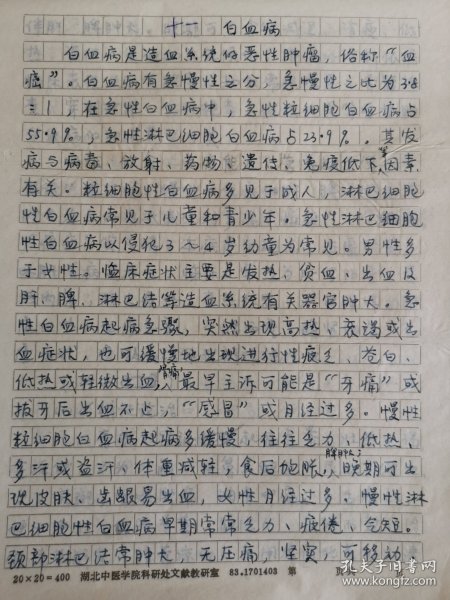 十一 白血病
白血病是造血系统的恶性肿瘤，俗称“血
癌”。白血病有急慢性之分，急慢性之比为3.8
：1，在急性白血病中，急性粒细胞白血病占
55.9%，急性淋巴细胞白血病占23.9%。其发
病与病毒、放射、药物、遗传、免疫低下等因素
有关。粒细胞性白血病多见于成人，淋巴细胞
性白血病常见于儿童和青少年。急性淋巴细胞
性白血病以侵犯3～4岁幼童为常见。男性多
于女性。临床症状主要是发热、贫血、出血及
肝、脾、淋巴结等造血系统有关器官肿大。急
性白血病起病急骤，突然出现高热、衰竭或出
血症状，也可缓慢地出现进行性疲乏、苍白、
低热或轻微出血，骨痛，最早主诉可能是“牙痛”或
拔牙后出血不止；“感冒”或月经过多。慢性
粒细胞白血病起病多缓慢，往往乏力、低热、
多汗或盗汗、体重减轻，食后饱胀，脾肿大；晚期可出
现皮肤、齿龈易出血，女性月经过多。慢性淋
巴细胞性白血病早期常常乏力、疲倦、气短。
颈部淋巴结常肿大，无压痛，坚实，可移动
20×20=400 湖北中医学院科研处文献教研室 83.1701403 第 页
孔夫子旧书网